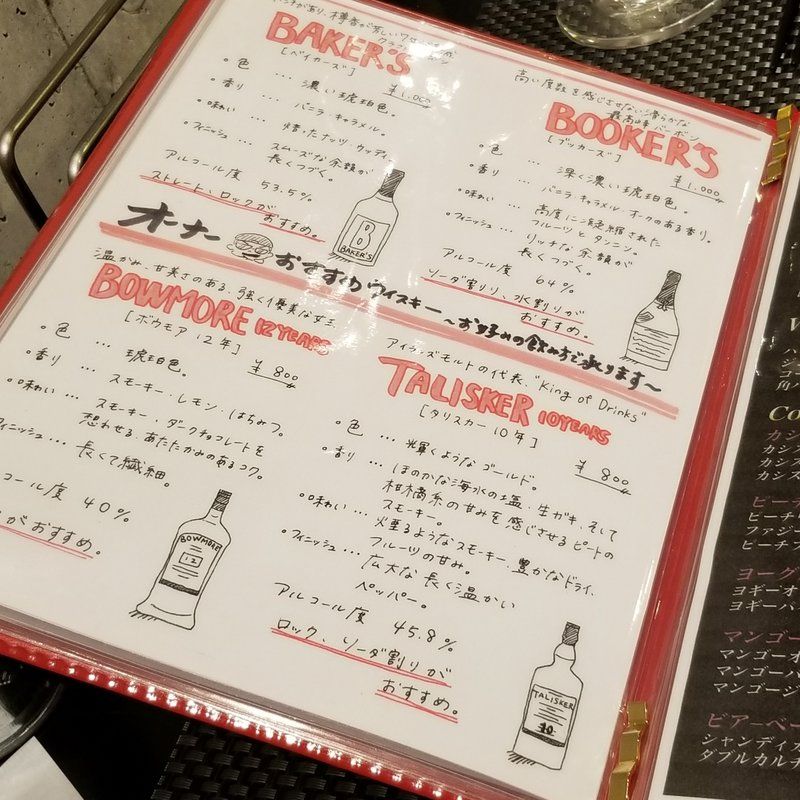 BAKER'S
[ベイカーズ]
¥1.000
・色 … 濃い琥珀色。
・香り … バニラ・キャラメル。
・味わい … 焼いたナッツ、ウッディ。
・フィニッシュ … スムーズな余韻が
長くつづく。
アルコール度 53.5%
ストレート、ロックが
おすすめ。
BAKER'S
高い度数を感じさせない滑らかな
最高峰バーボン
BOOKER'S
[ブッカーズ]
¥1.000
・色 … 深く濃い琥珀色。
・香り … バニラ・キャラメル・オークのある香り。
・味わい … 高度に凝縮された
フルーツとタンニン。
・フィニッシュ … リッチな余韻が
長くつづく。
アルコール度 64%
ソーダ割り、水割りが
おすすめ。
オーナー おすすめウィスキー 〜お好みの飲み方で承ります〜
温かみ、甘美さのある、強く優美な女王
BOWMORE 12YEARS
[ボウモア 12年]
¥800
・色 … 琥珀色。
・香り … スモーキー・レモン・はちみつ。
・味わい … スモーキー・ダークチョコレートを
想わせる、あたたかみのあるコク。
フィニッシュ … 長くて繊細。
コール度 40%
がおすすめ。
BOWMORE
12
アイランズモルトの代表、"King of Drinks"
TALISKER 10YEARS
[タリスカー 10年]
¥800
・色 … 輝くようなゴールド。
・香り … ほのかな海水の塩・生ガキ、そして
柑橘系の甘みを感じさせるピートの
スモーキー。
・味わい … 煙るようなスモーキー、豊かなドライ
フルーツの甘み。
・フィニッシュ … 広大な長く温かい
ペッパー。
アルコール度 45.8%
ロック、ソーダ割りが
おすすめ。
TALISKER
10
Co
カシ
カシス
カシス
カシス
ピーチ
ピーチ
ファジー
ピーチフ
ヨーグ
ヨギーオ
ヨギーパ
マンゴー
マンゴーオ
マンゴーパ
マンゴージ
ビアーベー
シャンディガ
ダブルカルチ